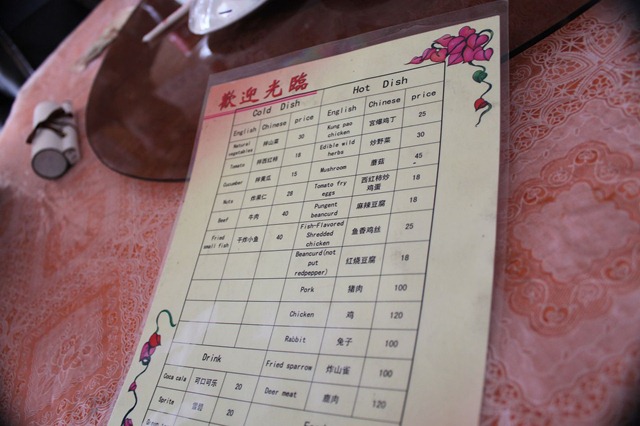 歡迎光臨
Cold Dish Hot Dish
English Chinese price English Chinese price
Natural vegetables 拌山菜 30 Kung pao chicken 宫爆鸡丁 25
Tomato 拌西红柿 18 Edible wild herbs 炒野菜 30
Cucumber 拌黄瓜 15 Mushroom 蘑菇 45
Nuts 炸果仁 28 Tomato fry eggs 西红柿炒鸡蛋 18
Beef 牛肉 40 Pungent beancurd 麻辣豆腐 18
Fried small fish 干炸小鱼 40 Fish-Flavored Shredded chicken 鱼香鸡丝 25
Beancurd(not put redpepper) 红烧豆腐 18
Pork 猪肉 100
Chicken 鸡 120
Rabbit 兔子 100
Drink Fried sparrow 炸山雀 100
Coca cala 可口可乐 20 Deer meat 鹿肉 120
Sprite 雪碧 20